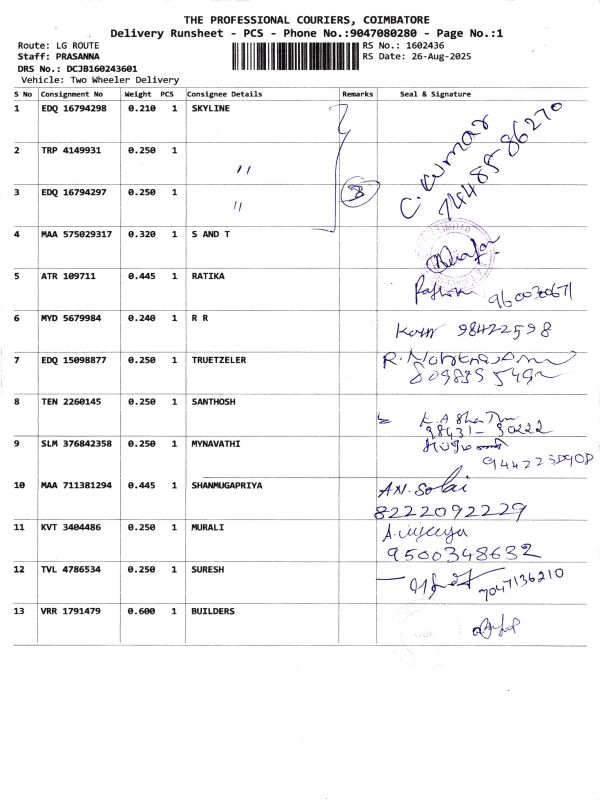 THE PROFESSIONAL COURIERS, COIMBATORE
Delivery Runsheet - PCS - Phone No.:9047080280 - Page No.:1
Route: LG ROUTE RS No.: 1602436
Staff: PRASANNA RS Date: 26-Aug-2025
DRS No.: DCJB160243601
Vehicle: Two Wheeler Delivery
S No Consignment No Weight PCS Consignee Details Remarks Seal & Signature
1 EDQ 16794298 0.210 1 SKYLINE C. Kumar
2 TRP 4149931 0.250 1 〃 7448586270
3 EDQ 16794297 0.250 1 〃 3
4 MAA 575029317 0.320 1 S AND T
5 ATR 109711 0.445 1 RATIKA
6 MYD 5679984 0.240 1 R R 98422598
7 EDQ 15098877 0.250 1 TRUETZELER
8 TEN 2260145 0.250 1 SANTHOSH
98431-30222
9 SLM 376842358 0.250 1 MYNAVATHI
10 MAA 711381294 0.445 1 SHANMUGAPRIYA AN. Solai
8222092229
11 KVT 3404486 0.250 1 MURALI
9500348632
12 TVL 4786534 0.250 1 SURESH 7047136210
13 VRR 1791479 0.600 1 BUILDERS